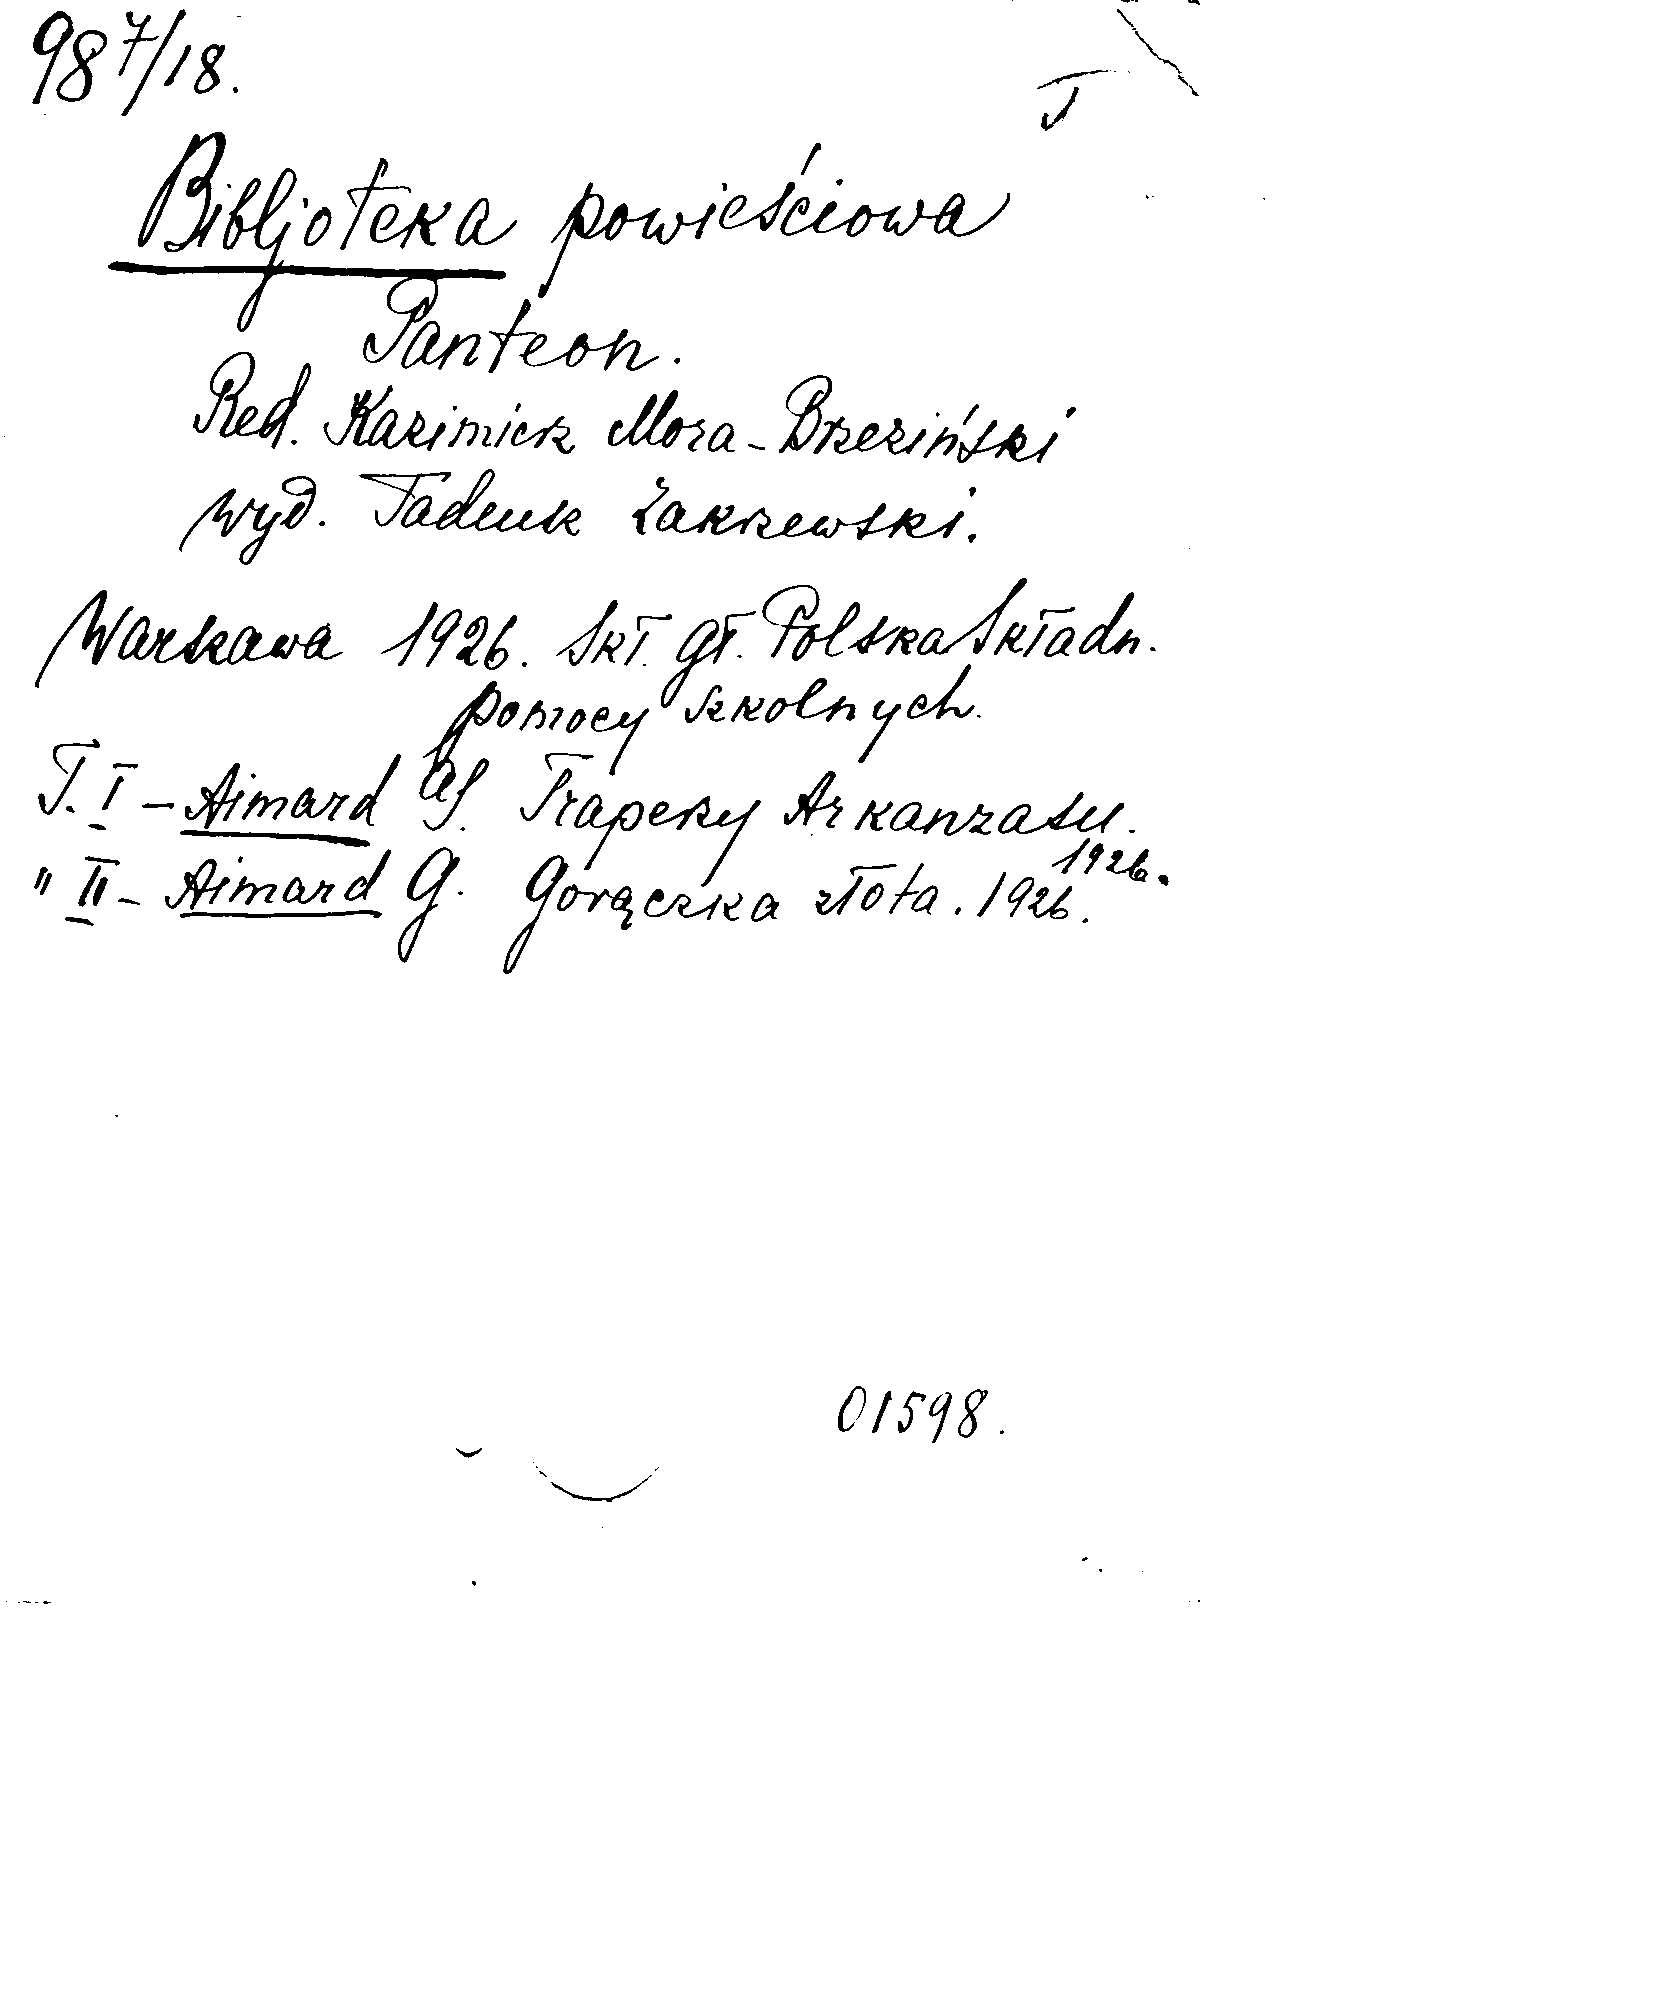 98 7/18.
T
Bibljoteka powieściowa
Panteon.
Red. Kazimierz Mora-Brzeziński
wyd. Tadeusz Zakrzewski.
Warszawa 1926. Skł. gł. Polska Składn.
pomocy szkolnych.
T. I – Aimard G. Traperzy Arkanzasu.
1926.
" II – Aimard G. Gorączka złota. 1926.
01598.